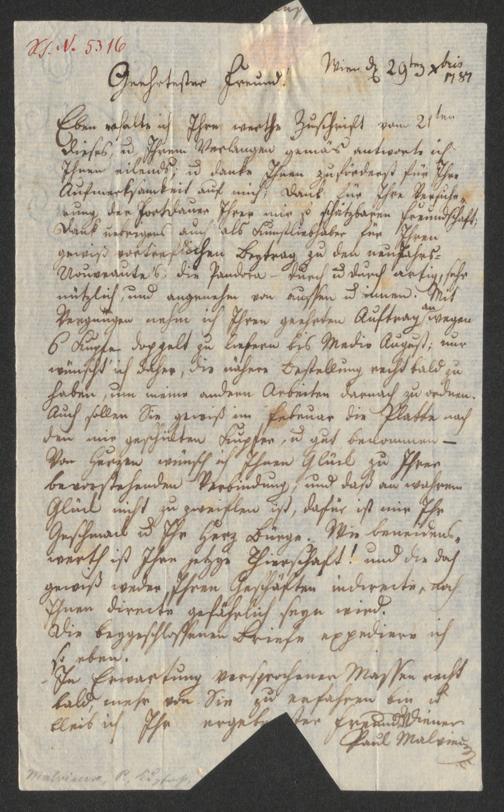 H. N. 5316
Wien d 29ten xbris
1787
Geehrtester Freund!
Eben erhalte ich Ihre werthe Zuschrift vom 21ten
dieses, u Ihrem Verlangen gemäs antworte ich
Ihnen eilends, u danke Ihnen zuförderst für Ihre
Aufmerksamkeit auf mich, Dank für Ihre Versiche-
rung, der Fortdauer Ihrer mir so schätzbaren Freundschaft;
Dank auch als Kunstliebhaber für Ihren
gewiß vortreflichen Beytrag zu den neuJahrs-
Nouveautés; die Pandora - durch u durch artig, sehr
nützlich, und angenehm von aussen u innen. Mit
Vergnügen nehm ich Ihren geehrten Auftrag an wegen
6 Kupfer doppelt zu liefern bis Medio August; nur
wünscht ich daher, die nähere Bestellung recht bald zu
haben, um meine andern Arbeiten darnach zu ordnen.
Auch sollen Sie gewiß im Februar die Platte nach
den mir geschikten Kupfer, u gut bekommen –
Von Herzen wünsch ich Ihnen Glück zu Ihrer
bevorstehenden Verbindung, und daß an wahrem
Glück nicht zu zweiflen ist, dafür ist mir Ihr
Geschmack u Ihr Herz Bürge. Wie beneidens-
werth ist Ihre jetzige! und die doch
gewiß weder Ihren Geschäften indirecte, noch
Ihnen directe gefährlich seyn wird.
Die beygeschlossenen Briefe expediere ich
so eben.
In Erwartung versprochener Massen recht
bald, mehr von Sie zu erfahren bin u
bleib ich Ihr ergebenster Freund Diener
Paul Malvieux